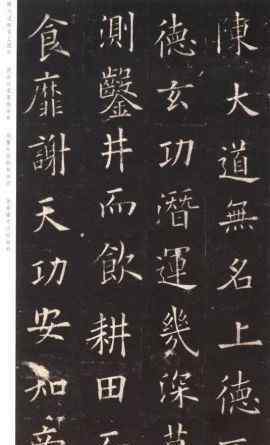 陳大道無名上德
德玄功潛運幾深莫
測鑿井而飲耕田
食靡謝天功安知帝